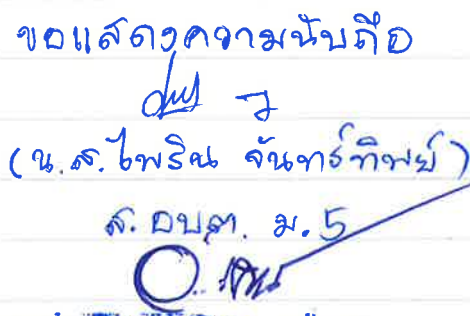 ขอแสดงความนับถือ
(น.ส.ไพริน จันทร์ทิพย์)
ส.อบต. ม.5